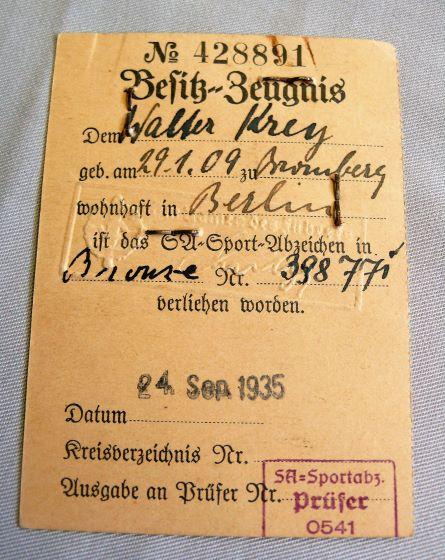 № 428891
Besitz-Zeugnis
Dem Walter Krey
geb. am 29.1.09 zu Bromberg
wohnhaft in Berlin
ist das SA-Sport-Abzeichen in
Bronze Nr. 398771
verliehen worden.
24. Sep. 1935
Datum
Kreisverzeichnis Nr.
Ausgabe an Prüfer Nr.
SA=Sportabz.
Prüfer
0541